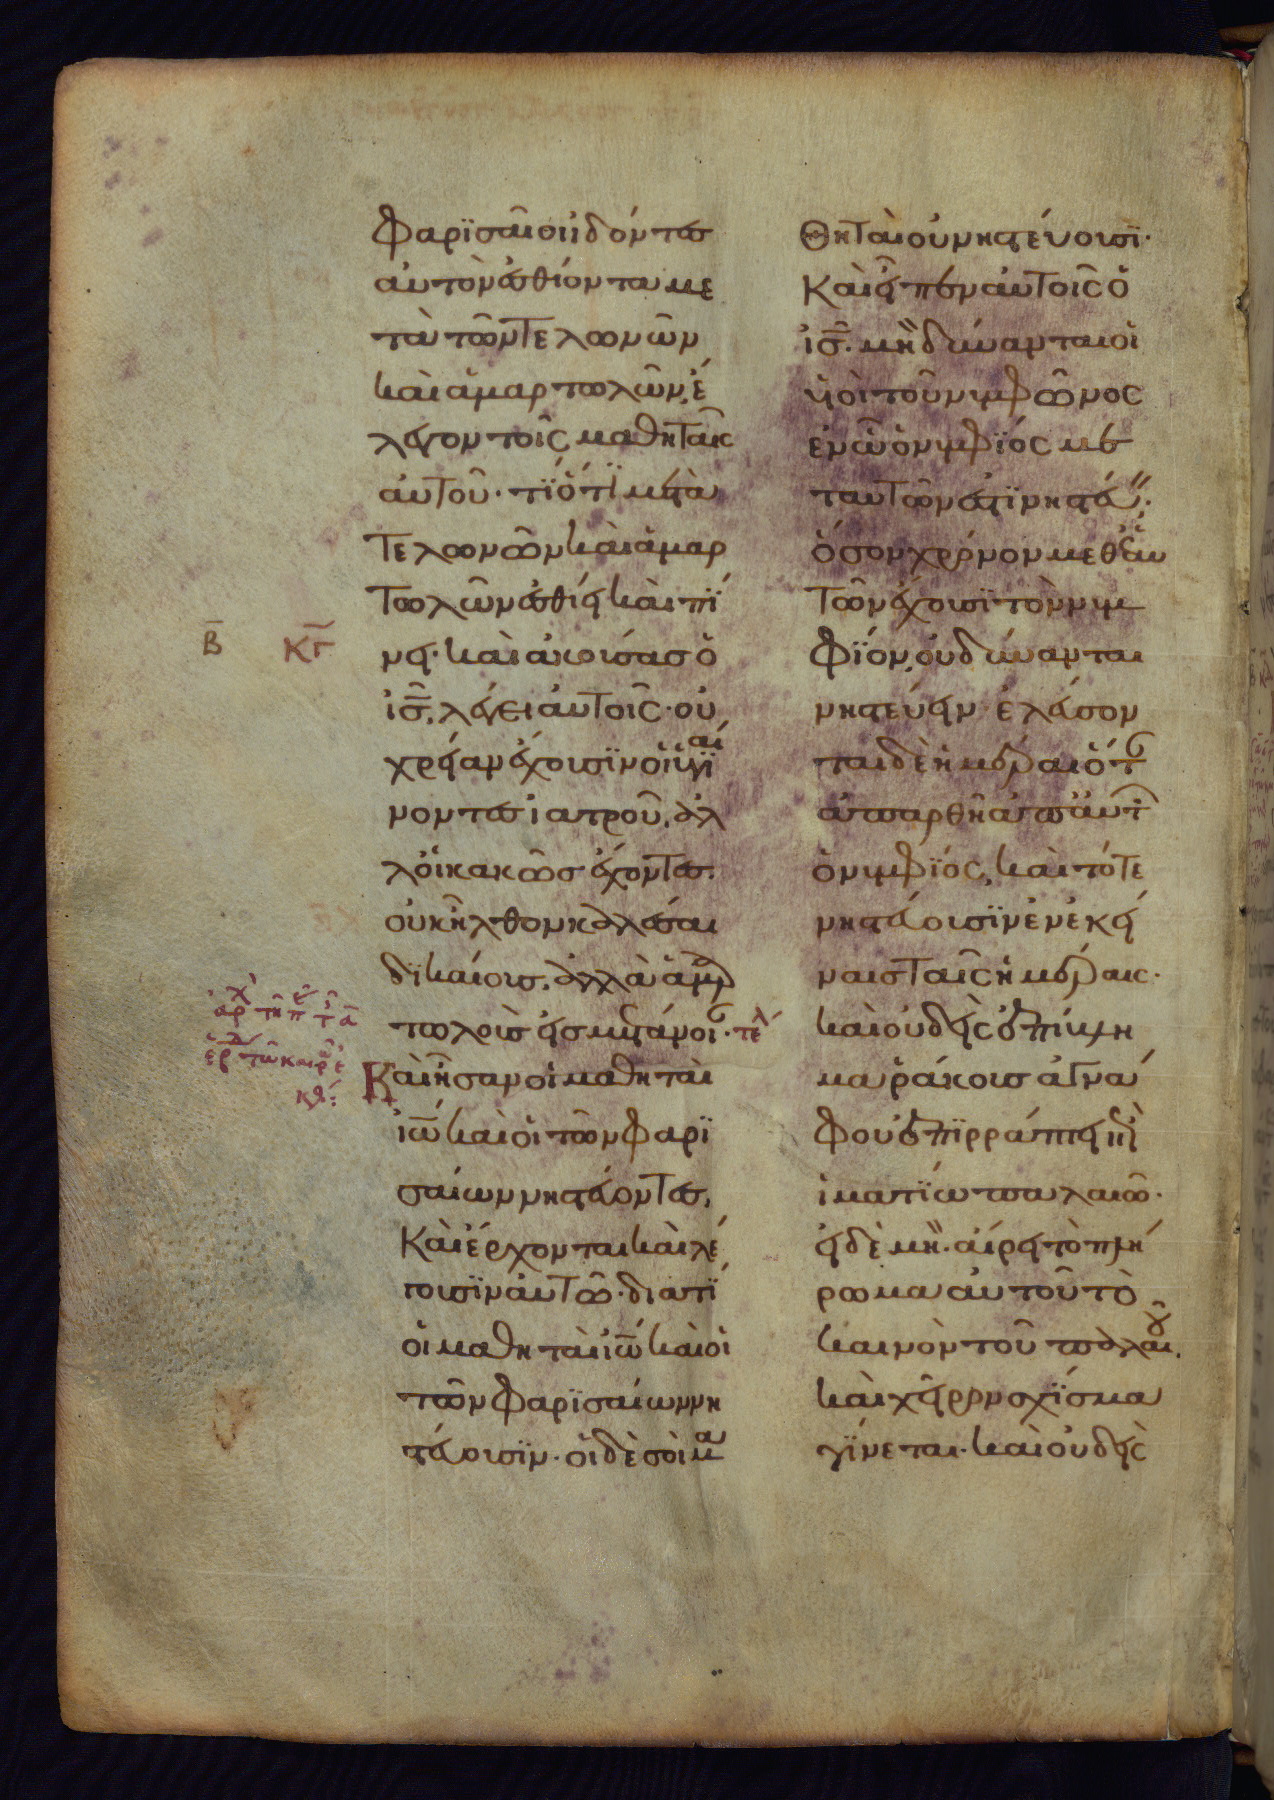 φαρϊσαῖοι ἰδόντες
αὐτὸν ἐσθίοντα με
τὰ τῶν τελωνῶν
καὶ ἁμαρτωλῶν, ἔ
λεγον τοῖς μαθηταῖς
αὐτοῦ· τΐ ὅτϊ μετὰ
τελωνῶν καὶ ἁμαρ
τωλῶν ἐσθίει καὶ πΐ
Β ΚΓ νει· καὶ ἀκούσας ὁ
ἰς̅, λέγει αὐτοῖς· οὐ
χρείαν ἔχουσϊν οἱ ὑγϊαί
νοντες ἰατροῦ, ἀλ
λ' οἱ κακῶς ἔχοντες.
οὐκ ἦλθον καλέσαι
δϊκαίους, ἀλλὰ ἁμαρ
τωλοὺς εἰς μετάνοι· τελ
Καὶ ἦσαν οἱ μαθηταὶ
ἰω̅ καὶ οἱ τῶν φαρϊ
σαίων νηστεύοντες,
Καὶ ἔρχονται καὶ λέ
γουσϊν αὐτῶ· διατΐ
οἱ μαθηταὶ ἰω̅ καὶ οἱ
τῶν φαρϊσαίων νη
στεύουσϊν· οἱ δὲ σοὶ μα
θηταὶ οὐ νηστεύουσϊ·
Καὶ εἶπεν αὐτοῖς ὁ
ἰς̅· μὴ δύνανται οἱ
υἱοὶ τοῦ νυμφῶνος
ἐν ὧ ὁ νυμφϊός με
τ' αὐτῶν ἐστὶ νηστεύειν·
ὅσον χρόνον μεθ' ἑαυ
τῶν ἔχουσϊ τὸν νυμ
φϊόν, οὐ δύνανται
νηστεύειν· ἐλεύσον
ται δὲ ἡμέραι ὅτ
ἀπαρθῆ ἀπ' αὐτ
ὁ νυμφϊός, καὶ τότε
νηστεύουσϊν ἐν ἐκεί
ναις ταῖς ἡμέραις·
καὶ οὐδεὶς ἐπίβλη
μα ῥάκους ἀγνά
φου ἐπϊρράπτει ἐπὶ
ἱματίω παλαιῶ·
εἰ δὲ μὴ· αἴρει τὸ πλή
ρωμα αὐτοῦ τὸ
καινὸν τοῦ παλαιοῦ,
καὶ χεῖρον σχϊσμα
γΐνεται· καὶ οὐδεὶς